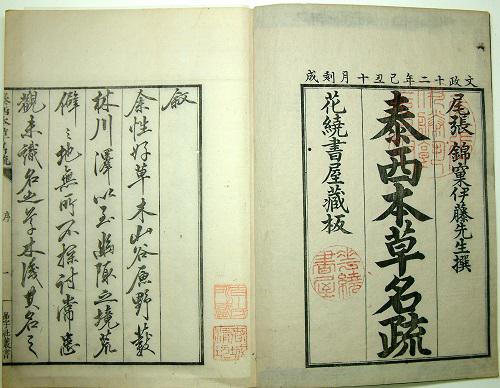 文政十二年己丑十月刻成
尾張 錦窠伊藤先生撰
泰西本草名疏
花繞書屋藏板
花繞書屋
叙
余性好草木山谷原野藪
林川澤以至幽陬之境荒
僻之地無所不探討常患
觀未識名之草木 其名之
泰西本草名疏 序 一